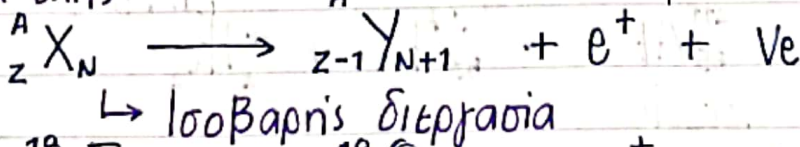 ᴬ_Z X_N ⟶ _{Z-1}Y_{N+1} + e⁺ + Ve
↳ Ισοβαρής διεργασία